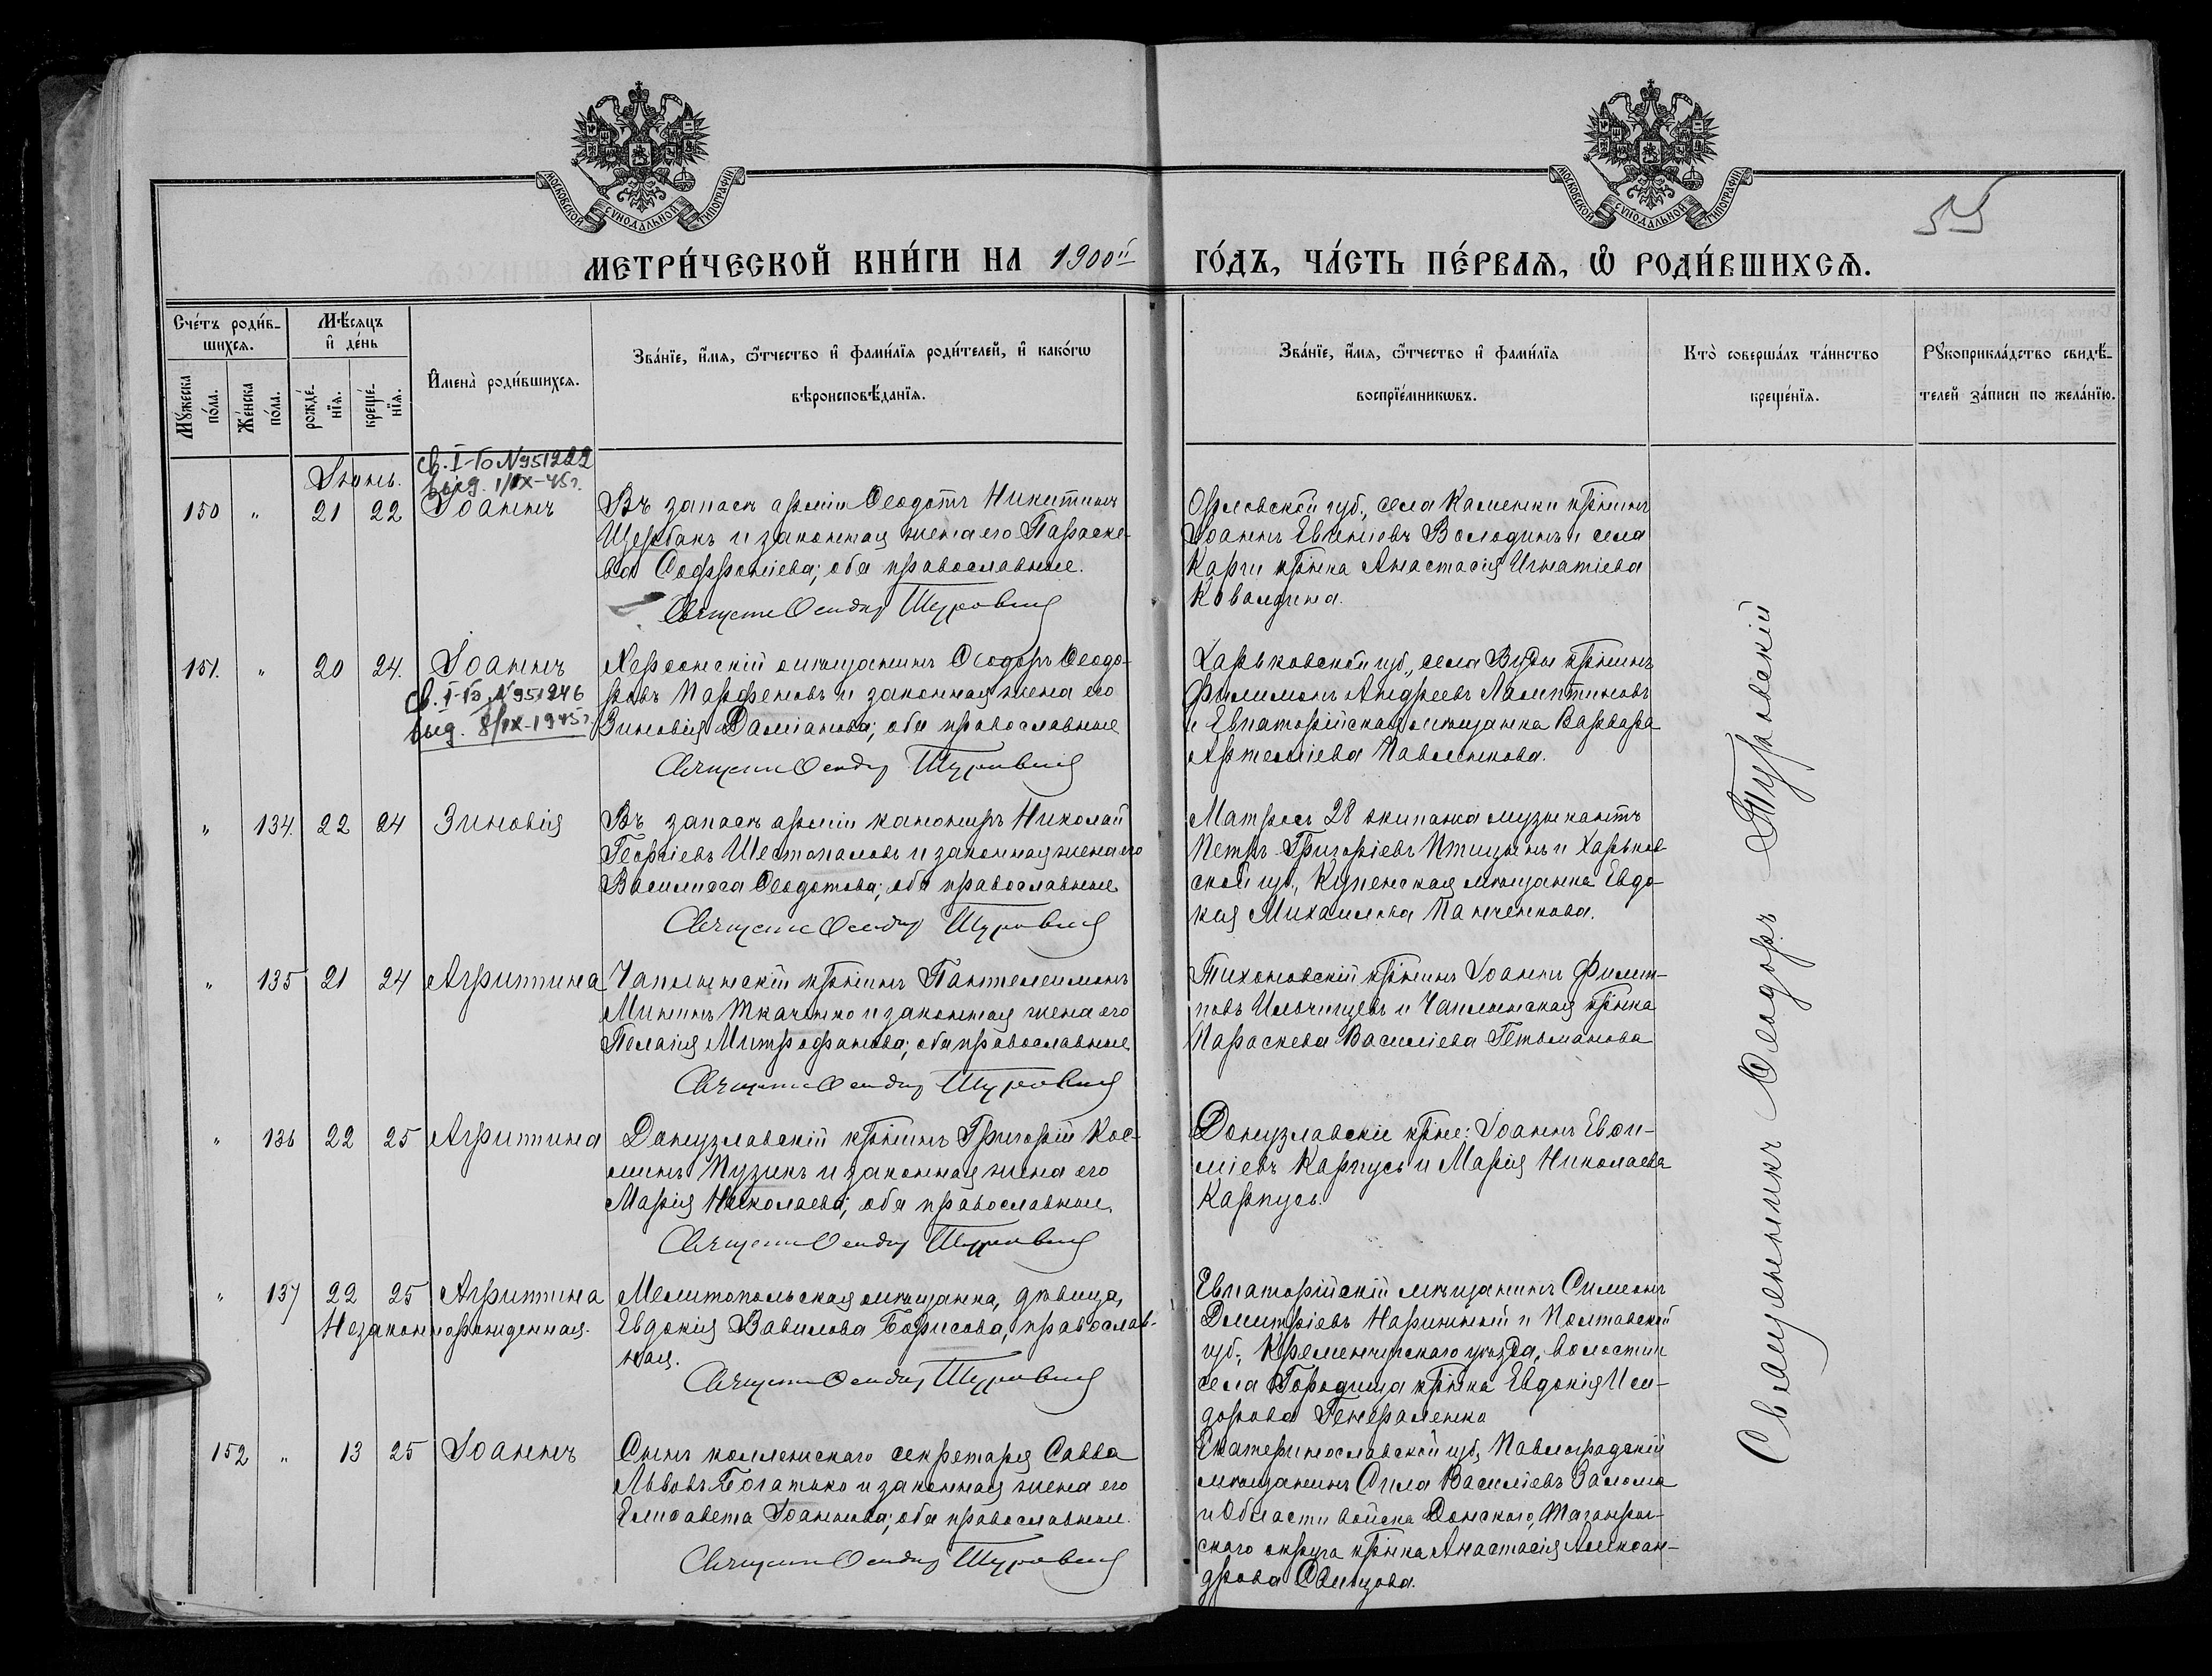 МОСКОВСКОЙ СУНОДАЛЬНОЙ ТИПОГРАФІИ
МОСКОВСКОЙ СУНОДАЛЬНОЙ ТИПОГРАФІИ
55
МЕТРИ́ЧЕСКОЙ КНИ́ГИ НА 1900й ГО́ДЪ, ЧА́СТЬ ПЕ́РВАѦ, Ѡ҆ РОДИ́ВШИХСѦ.
Сче́тъ роди́в-
шихсѧ.
Мꙋ́жеска
по́ла.
Же́нска
по́ла.
Мѣ́сѧцъ
и҆ де́нь
рожде́-
нїѧ.
креще́-
нїѧ.
И҆мена̀ роди́вшихсѧ.
Зва́нїе, и҆́мѧ, ѻ҆́тчество и҆ фами́лїѧ роди́телей, и҆ како́гѡ
вѣроисповѣ́данїѧ.
Зва́нїе, и҆́мѧ, ѻ҆́тчество и҆ фами́лїѧ
воспрїе́мникѡвъ.
Кто̀ соверша́лъ та́инство
креще́нїѧ.
Рꙋкоприкла́дство свидѣ́-
телей за́писи по жела́нїю.
Іюнь.
Св. I-го № 951222
выд. 1/IX-45г.
150 " 21 22 Іоаннъ
Въ запасѣ арміи Ѳеодотъ Никитинъ
Щербакъ и законная жена его Параске-
ва Софроніева; оба православные.
Священ Ѳеодор Туровскій
Орловской губ., села Каменки кр̃нинъ
Іоаннъ Евѳиміевъ Володинъ и села
Карги кр̃нка Анастасія Игнатіева
Ковалдина.
151. " 20 24. Іоаннъ
Св. I-го, № 951246
выд. 8/IX-1945г.
Херсонскій мѣщанинъ Ѳеодоръ Ѳеодо-
ровъ Парфеновъ и законная жена его
Зиновія Даміанова; оба православные
Священ Ѳеодор Туровскій
Харьковской губ., села Виды кр̃нинъ
Филимонъ Андреевъ Лалитиновъ
и Евпаторійская мѣщанка Варвара
Артеміева Павленкова.
" 134. 22 24 Зиновія
Въ запасѣ арміи канониръ Николай
Георгіевъ Шестопаловъ и законная жена его
Василисса Ѳеодотова; оба православные
Священ Ѳеодор Туровскій
Матросъ 28 экипажа музыкантъ
Петръ Григоріевъ Птицынъ и Харьков-
ской губ., Купенская мѣщанка Евдо-
кія Михаилова Панченкова.
" 135 21 24 Агриппина
Чаплынскій кр̃нинъ Пантелеимонъ
Мининъ Ткаченко и законная жена его
Пелагія Митрофанова; оба православные
Священ Ѳеодор Туровскій
Тихоновскій кр̃нинъ Іоаннъ Филип-
повъ Ильчищевъ и Чаплынская кр̃нка
Параскева Василіева Гетьманова
" 136 22 25 Агриппина
Донузлавскій кр̃нинъ Григорій Кос-
минъ Пузикъ и законная жена его
Марія Николаева; оба православные.
Священ Ѳеодор Туровскій
Донузлавскіе кр̃не: Іоаннъ Евѳи-
міевъ Карпусь и Марія Николаева
Карпусь.
" 137 22 25 Агриппина
Незаконнорожденная.
Мелитопольская мѣщанка, дѣвица,
Евдокія Вавилова Борисова, православ-
ная.
Священ Ѳеодор Туровскій
Евпаторійскій мѣщанинъ Симеонъ
Димитріевъ Нарижный и Полтавской
губ., Кременчугскаго уѣзда, волости и
села Городища кр̃нка Евдокія Иси-
дорова Генераленко
152 " 13 25 Іоаннъ
Сынъ коллежскаго секретаря Савва
Львовъ Богатько и законная жена его
Елисавета Іоаннова; оба православные.
Священ Ѳеодор Туровскій
Екатеринославской губ., Павлоградскій
мѣщанинъ Сила Василіевъ Залома
и Области войска Донского, Таганрог-
скаго округа кр̃нка Анастасія Алексан-
дрова Свинцова.
Священникъ Ѳеодоръ Туровскій